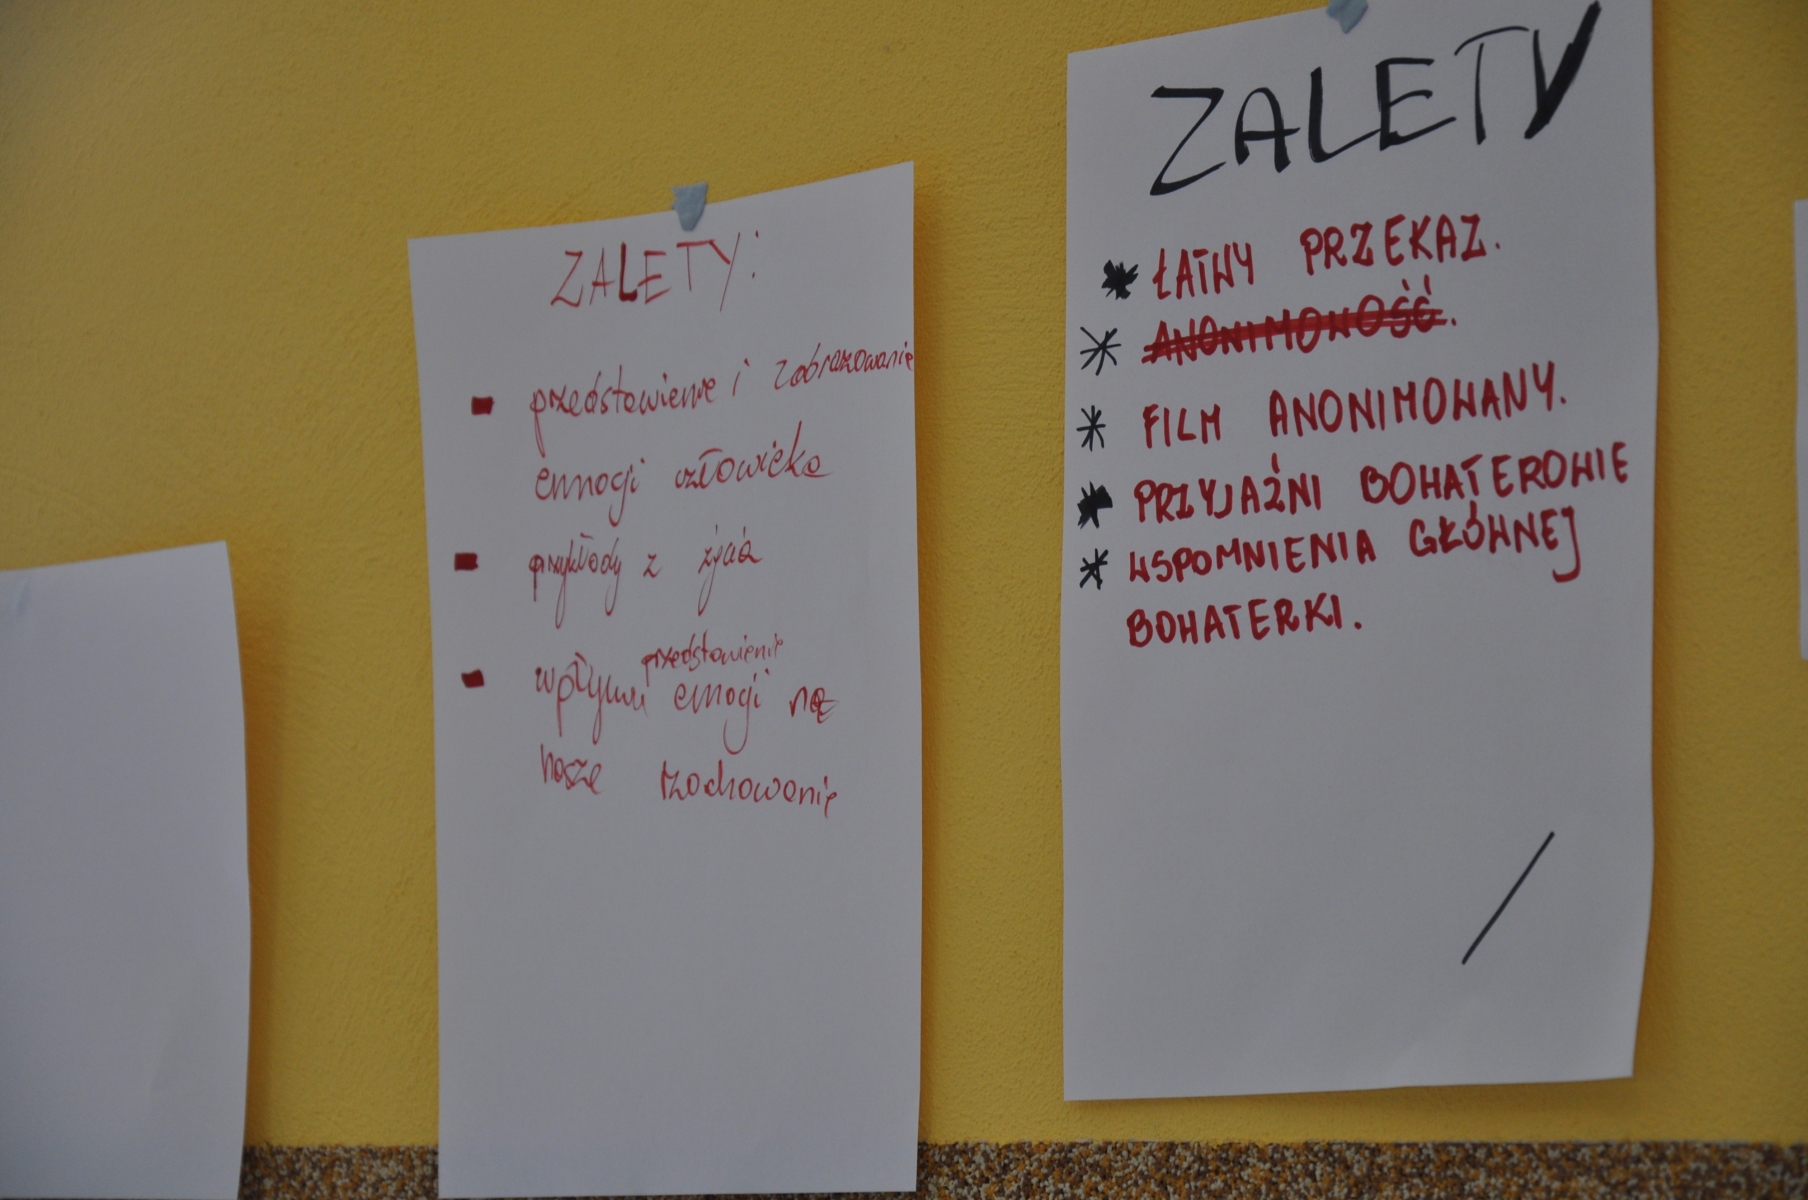 ZALETY:
przedstawienie i zobrazowanie
emnocji człowieka
przykłady z życia
przedstawienie
wpływu emocji na
nasze zachowanie
ZALETY
ŁATWY PRZEKAZ.
ANONIMOWOŚĆ.
FILM ANONIMOWANY.
PRZYJAŹNI BOHATEROWIE
WSPOMNIENIA GŁÓWNEJ
BOHATERKI.